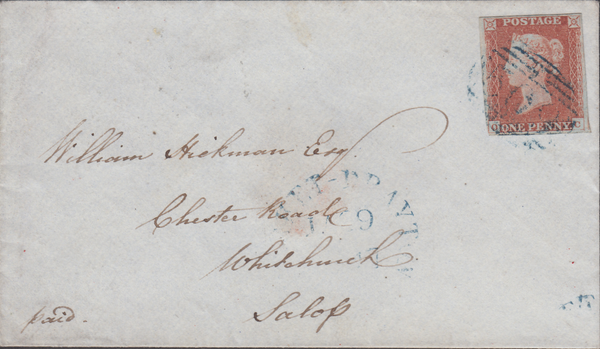 POSTAGE
ONE PENNY
William Hickman Esqr.
Chester Road
Whitchurch
Salop
paid.